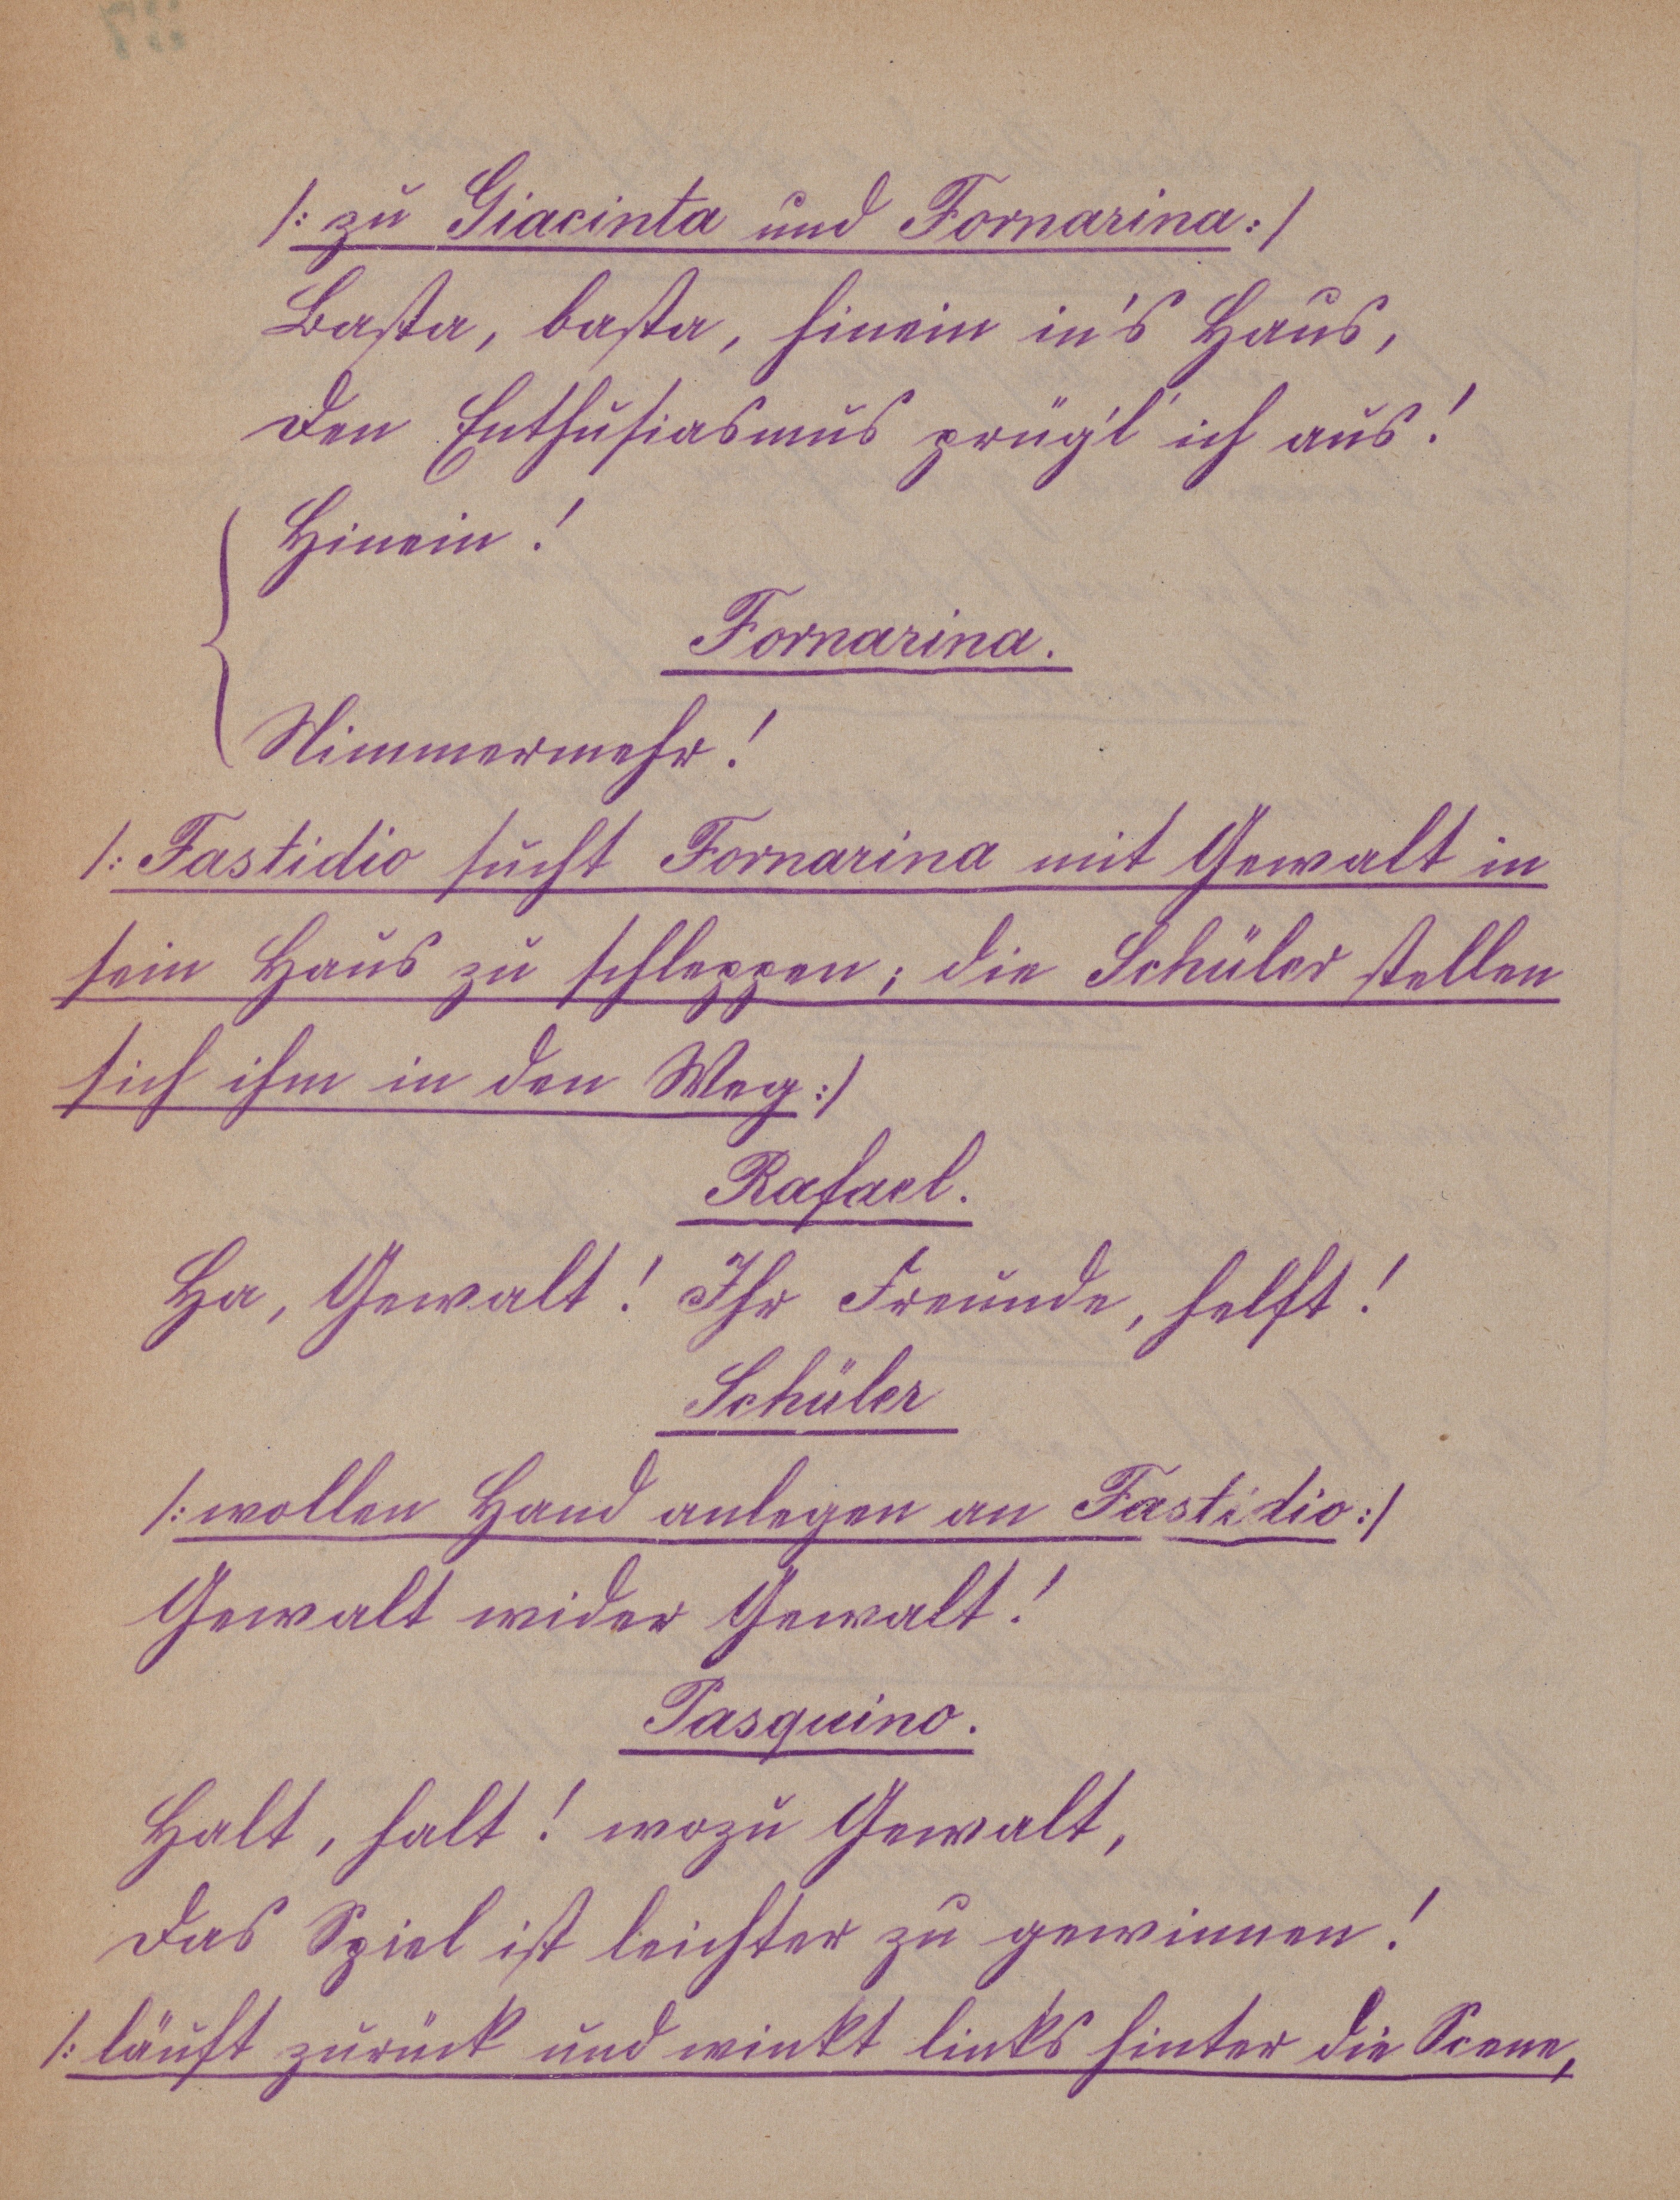 /: zu Giacinta und Fornarina :/
Basta, basta, hinein in's Haus,
Den Enthusiasmus prüg'l ich aus!
Hinein!
Fornarina.
Nimmermehr!
/: Fastidio sucht Fornarina mit Gewalt in
sein Haus zu schleppen; die Schüler stellen
sich ihm in den Weg :/
Rafael.
Ha, Gewalt! Ihr Freunde, helft!
Schüler
/: wollen Hand anlegen an Fastidio :/
Gewalt wider Gewalt!
Pasquino.
Halt, halt! wozu Gewalt,
Das Spiel ist leichter zu gewinnen!
/: läuft zurück und winkt links hinter die Scene,